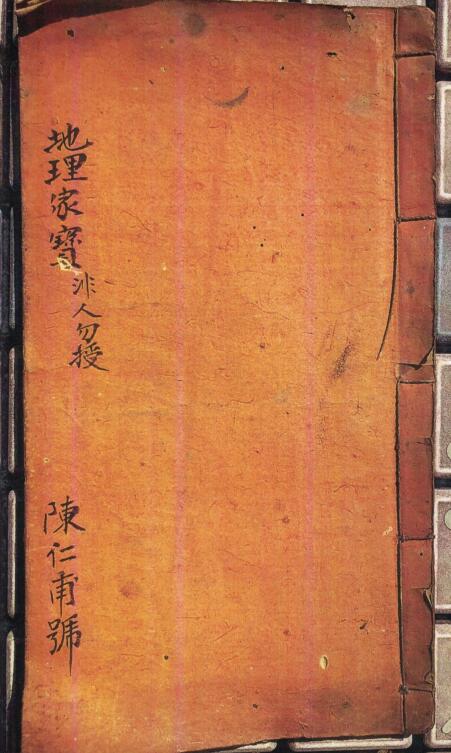 地理家寶
非人勿授
陳仁甫號